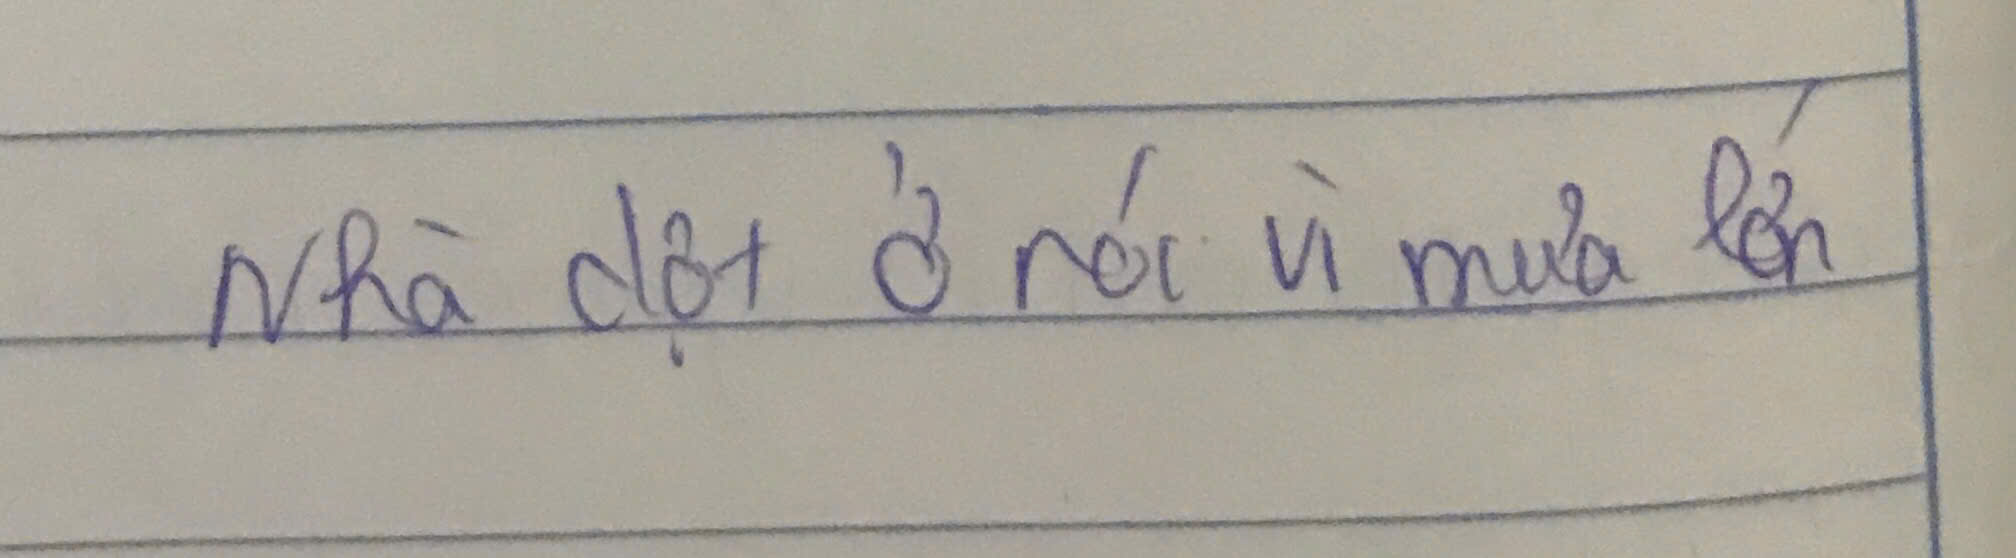 Nhà dột ở nói vì mưa lớn